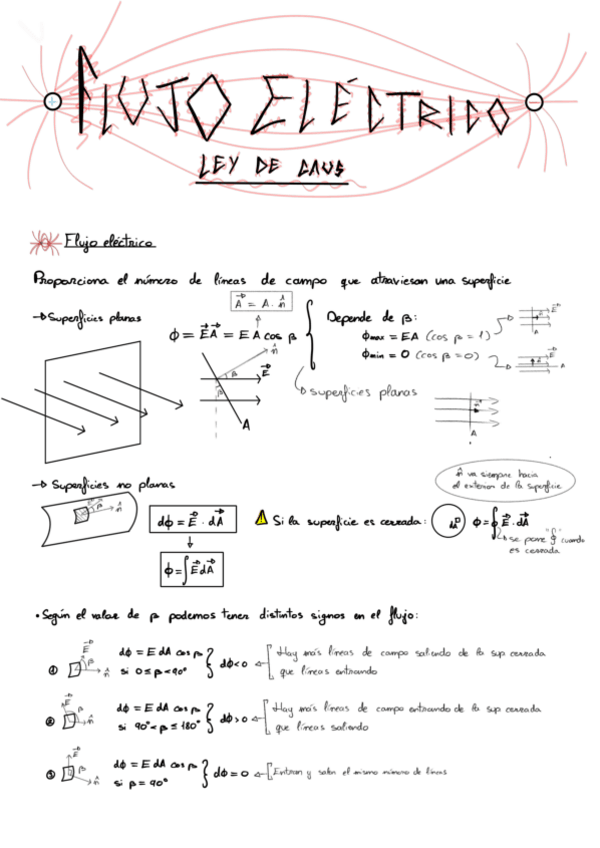 FLUJO ELÉCTRICO
LEY DE GAUS
Flujo eléctrico
Proporciona el número de líneas de campo que atraviesan una superficie
→ Superficies planas
A⃗ = A · n̂
ϕ = E⃗A⃗ = E A cos β
n̂
E⃗
β
β
A
Depende de β:
ϕmax = EA (cos β = 1)
ϕmin = 0 (cos β = 0)
E⃗
A
E⃗
A
superficies planas
A
n̂ va siempre hacia
el exterior de la superficie
→ Superficies no planas
n̂
dϕ = E⃗ · dA⃗
ϕ = ∫ E⃗ dA⃗
Si la superficie es cerrada:
dA⃗
ϕ = ∮ E⃗ · dA⃗
se pone "∮" cuando
es cerrada
• Según el valor de β podemos tener distintos signos en el flujo:
① E⃗ β n̂
dϕ = E dA cos β
si 0 ≤ β < 90°
dϕ < 0
Hay más líneas de campo saliendo de la sup cerrada
que líneas entrando
② E⃗ β n̂
dϕ = E dA cos β
si 90° < β ≤ 180°
dϕ > 0
Hay más líneas de campo entrando de la sup cerrada
que líneas saliendo
③ E⃗ β n̂
dϕ = E dA cos β
si β = 90°
dϕ = 0
Entran y salen el mismo número de líneas